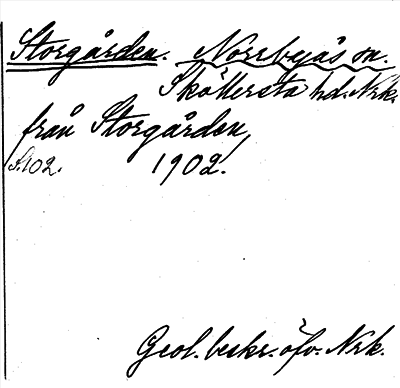 Storgården. Norrbyås sn.
Sköllersta hd. Nrk.
från Storgården,
S. 102. 1902.
Geol. beskr. öfv. Nrk.